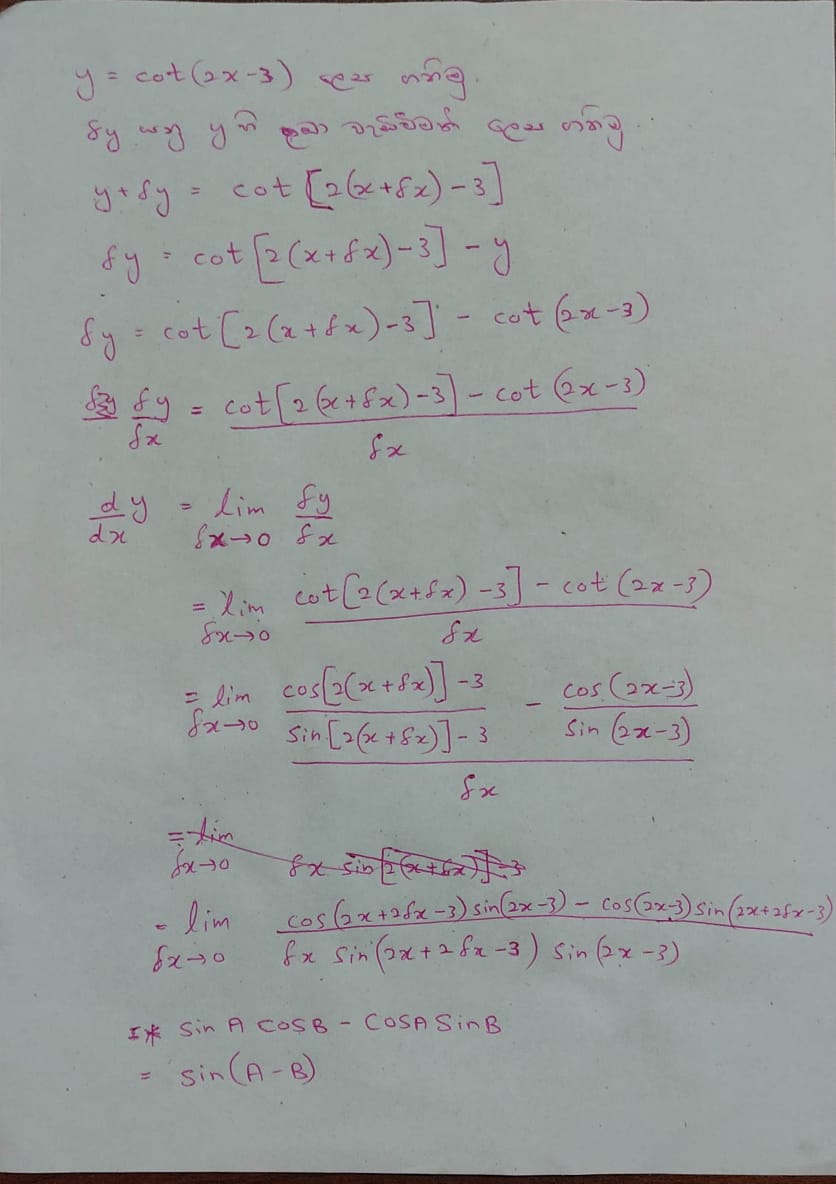 y = cot(2x-3) ලෙස ගනිමු.
δy යනු y හි කුඩා වැඩිවීමක් ලෙස ගනිමු.
y + δy = cot [2(x+δx)-3]
δy = cot [2(x+δx)-3] - y
δy = cot [2(x+δx)-3] - cot (2x-3)
δy/δx = (cot[2(x+δx)-3] - cot (2x-3))/δx
d/dx y = lim δx→0 δy/δx
= lim δx→0 (cot[2(x+δx)-3] - cot (2x-3))/δx
= lim δx→0 ((cos[2(x+δx)]-3)/(sin[2(x+δx)]-3) - (cos(2x-3))/(sin(2x-3)))/δx
= lim δx→0 δx sin[2(x+δx)]-3
= lim δx→0 (cos(2x+2δx-3) sin(2x-3) - cos(2x-3) sin(2x+2δx-3))/(δx sin(2x+2δx-3) sin(2x-3))
I* sin A cos B - cos A sin B
= sin(A-B)